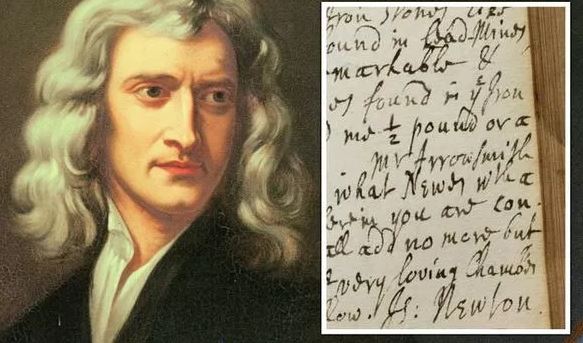 found in Lead Mines
markable &
found in yᵉ Iron
me ½ pound or a
Mr Arrowsmith
what News wth a
you are con-
all add no more but
very loving Chamber
low. Is: Newton.